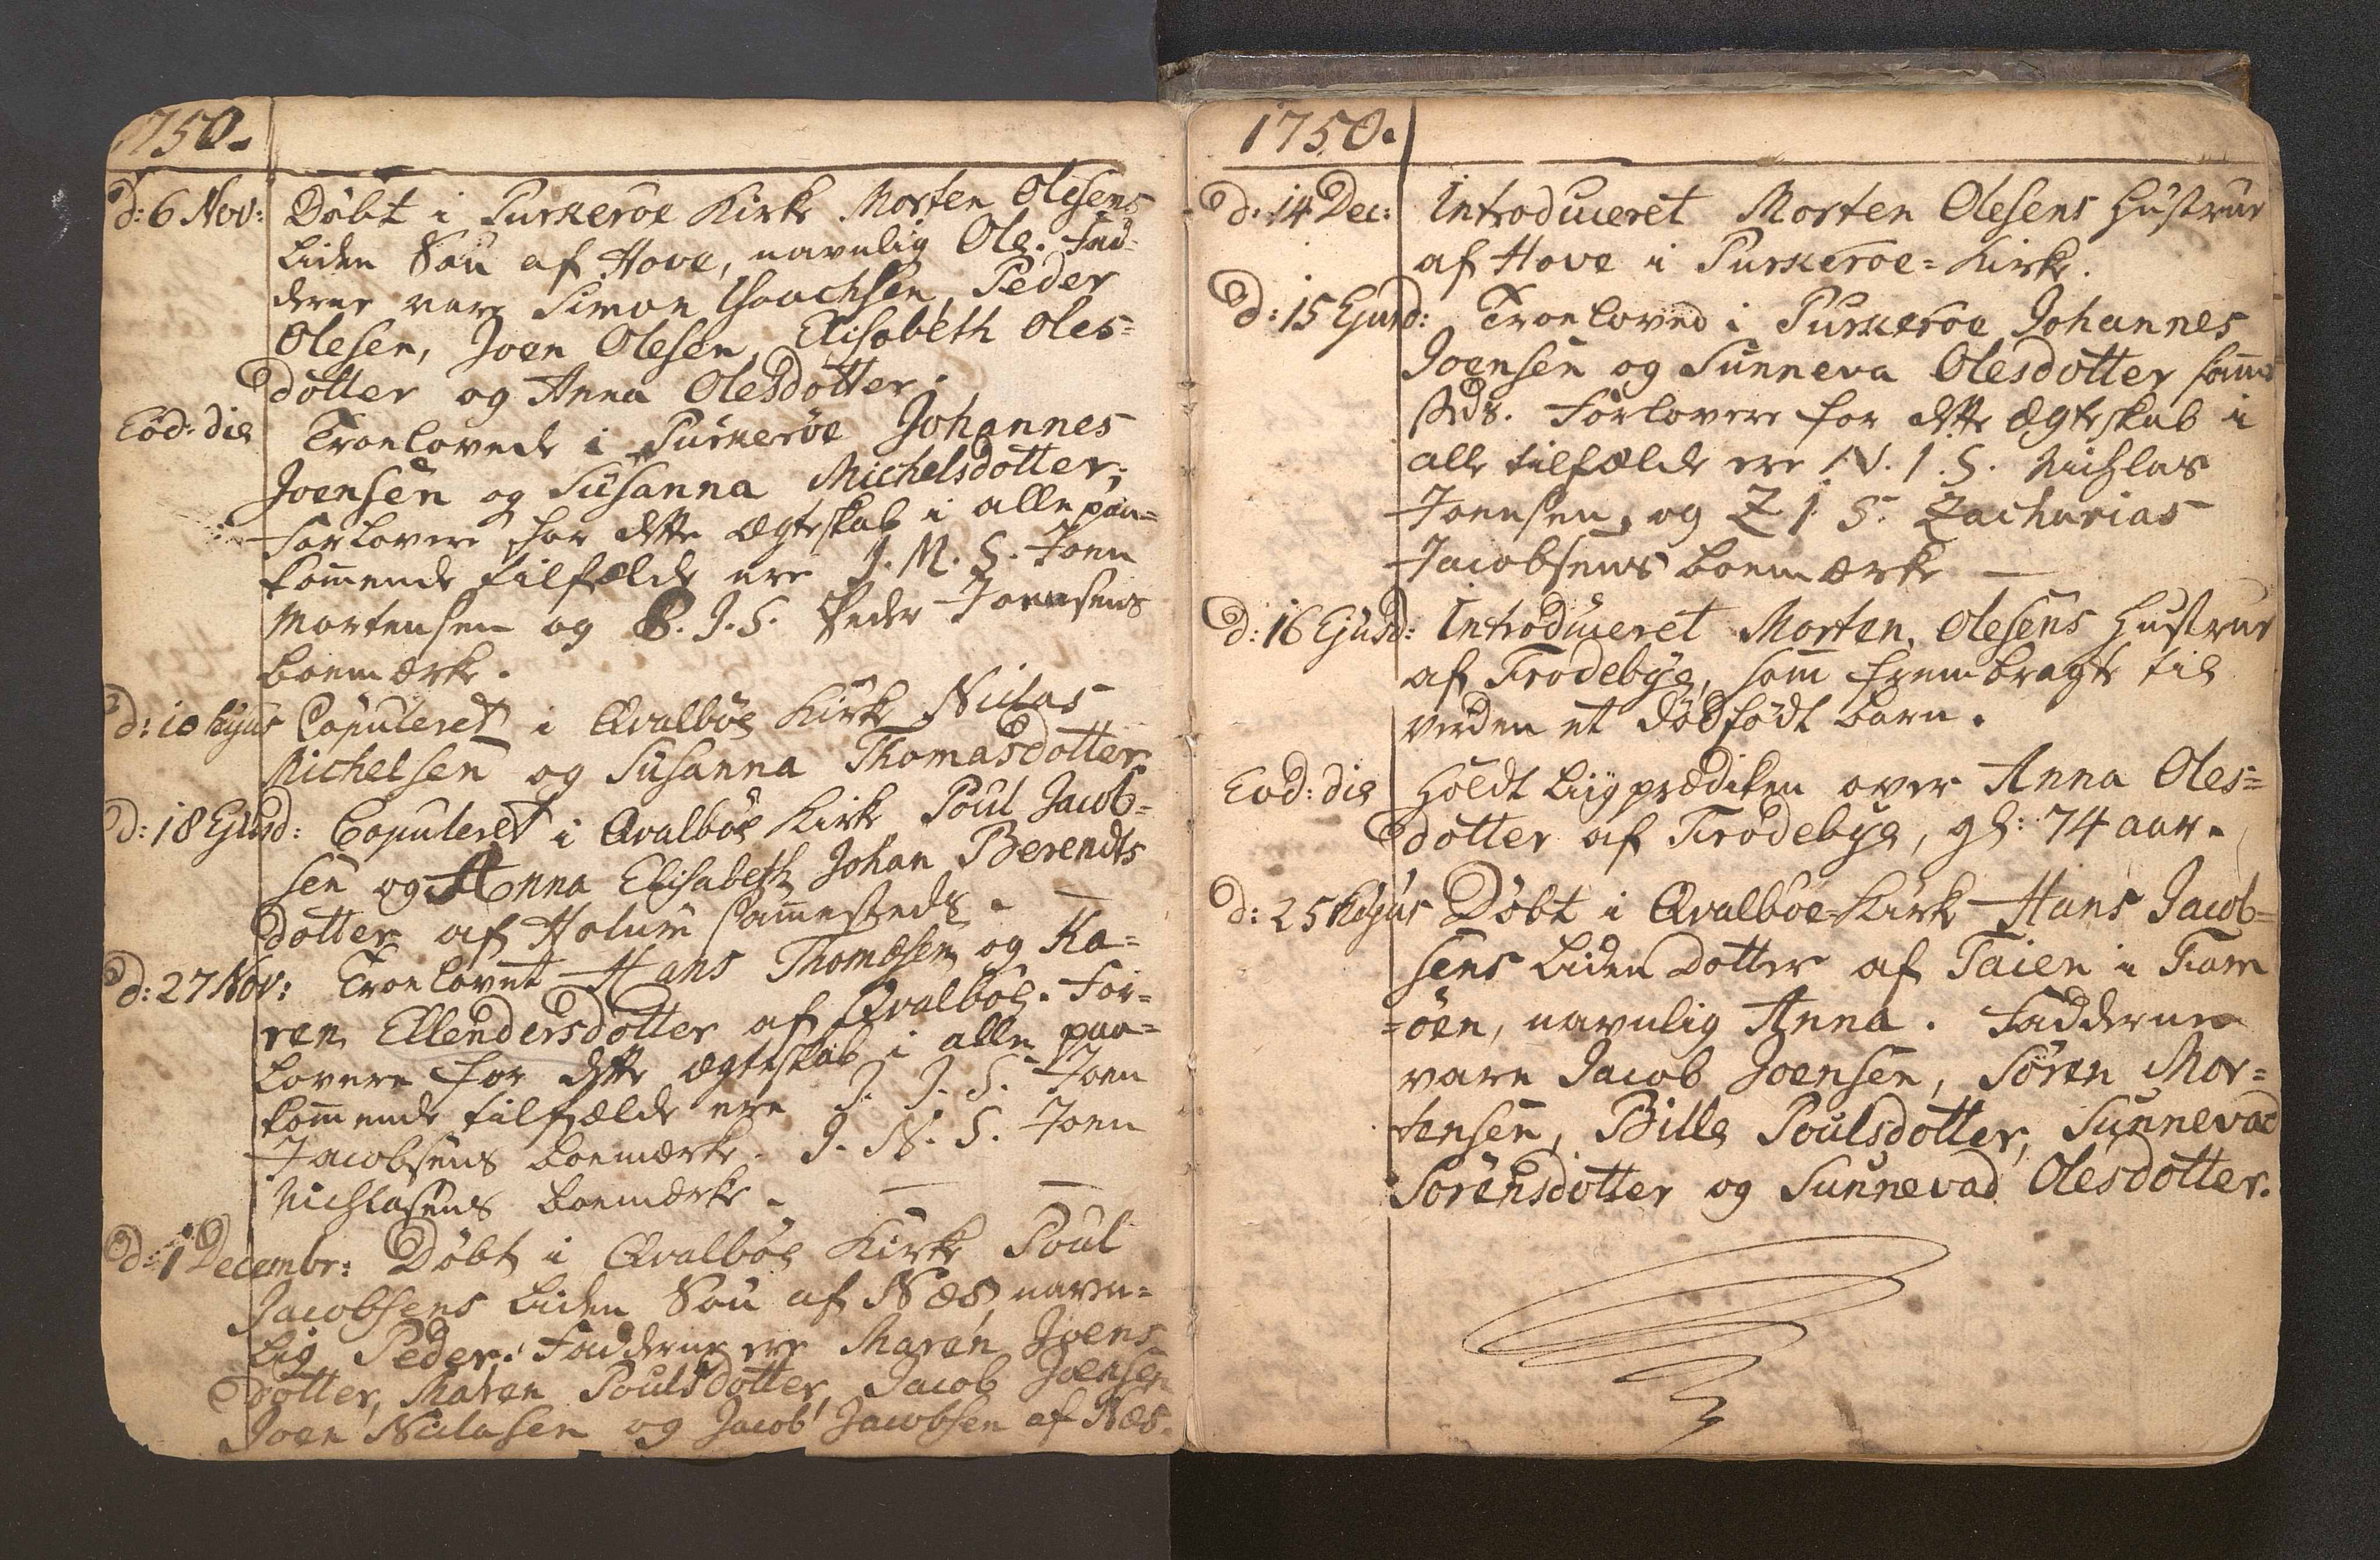 1750.
d: 6 Nov: Döbt i Purkeröe Kirke Morten Olesens
liden Søn af Hove, navnlig Ole. Fad-
derne vare Simon Isaachsen, Peder
Olesen, Joen Olesen, Elisabeth Oles-
dotter og Anna Olesdotter.
Eod: die Troelovede i Purkeröe Johannes
Joensen og Susanna Michelsdotter;
Forlovere for dette Ægteskab i alle paa-
kom̄ende tilfælde ere J. M. S. Joen
Mortensen og P. J. S. Peder Joensens
boemærke.
d: 10 hujus Copuleret i Qvalböe Kirke Niclas
Michelsen og Susanna Thomasdotter
d: 18 Ejusd: Copuleret i Qvalböe Kirke Poul Jacob-
sen og Anna Elisabeth Johan Berendts
dotter af Holum sam̄esteds.
d: 27 Nov: Troelovet Hans Thomasen og Ka-
ren Ellendersdotter af Qvalböe. For-
lovere for dette Ægteskab i alle paa-
kom̄ende tilfælde ere J. J. S. Joen
Jacobsens boemærke. J. N. S. Joen
Nichlasens boemærke.
d: 1 Decembr: Döbt i Qvalböe Kirke Poul
Jacobsens liden Søn af Næs, navn-
lig Peder. Fadderne ere Maren Joens
dotter, Maren Poulsdotter, Jacob Joensen
Joen Niclasen og Jacob Jacobsen af Næs.
1750.
d: 14 Dec: Introduceret Morten Olesens Hustrue
af Hove i Purkeröe-Kirke.
d: 15 Ejusd: Troeloved i Purkeröe Johannes
Joensen og Sunneva Olesdotter sam̄e
steds. Forlovere for dette Ægteskab i
alle tilfælde ere N. I. S. Nichlas
Joensen, og Z I. S. Zacharias
Jacobsens boemærke
d: 16 Ejusd: Introduceret Morten Olesens Hustrue
af Frodebye, som frembragte til
Verden et dødfødt barn.
Eod: die Holdt Liigprædiken over Anna Oles-
dotter af Frodebye, gl: 74 aar.
d: 25 hujus Döbt i Qvalböe-Kirke Hans Jacob-
sens liden Dotter af Taien i Fam-
-öen, navnlig Anna. Fadderne
vare Jacob Joensen, Sören Mor-
tensen, Bille Poulsdotter, Sunnevad
Sörensdotter og Sunnevad Olesdotter.